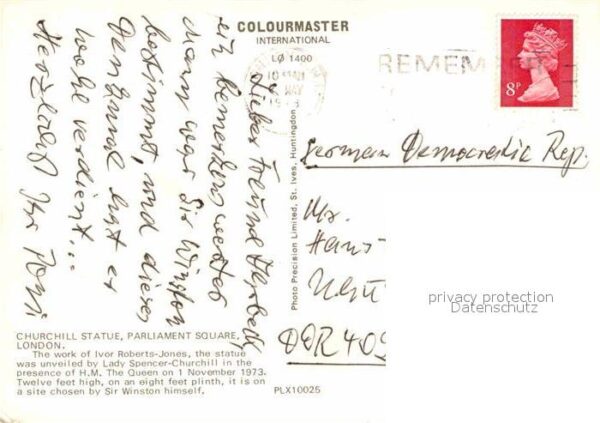 COLOURMASTER
INTERNATIONAL
LØ 1400
MAY
REMEMBER
8P
Lieber Freund Herbert,
ein bemerkenswerter
Mann war Sir Winston
bestimmt, und dieses
Denkmal hat er
wohl verdient...
Herzlichst Ihr
German Democratic Rep.
Mr.
Hans
DDR 409
Photo Precision Limited, St. Ives, Huntingdon
privacy protection
Datenschutz
CHURCHILL STATUE, PARLIAMENT SQUARE,
LONDON.
The work of Ivor Roberts-Jones, the statue
was unveiled by Lady Spencer-Churchill in the
presence of H.M. The Queen on 1 November 1973.
Twelve feet high, on an eight feet plinth, it is on
a site chosen by Sir Winston himself.
PLX10025